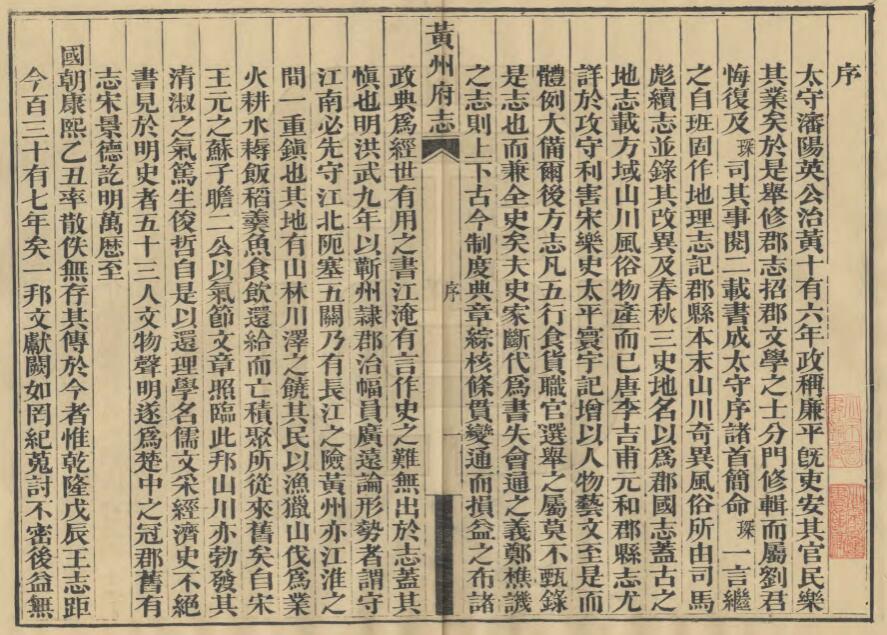 序
太守瀋陽英公治黃十有六年政稱廉平旣吏安其官民樂
其業矣於是舉修郡志招郡文學之士分門修輯而屬劉君
悔復及琛司其事閱二載書成太守序諸首簡命琛一言繼
之自班固作地理志記郡縣本末山川奇異風俗所由司馬
彪續志並錄其改異及春秋三史地名以爲郡國志蓋古之
地志載方域山川風俗物產而已唐李吉甫元和郡縣志尤
詳於攻守利害宋樂史太平寰宇記增以人物藝文至是而
體例大備爾後方志凡五行食貨職官選舉之屬莫不甄錄
是志也而兼全史矣夫史家斷代爲書失會通之義鄭樵譏
之志則上下古今制度典章綜核條貫變通而損益之布諸
黃州府志 序 一
政典爲經世有用之書江淹有言作史之難無出於志蓋其
愼也明洪武九年以蘄州隸郡治幅員廣遠論形勢者謂守
江南必先守江北阨塞五關乃有長江之險黃州亦江淮之
間一重鎭也其地有山林川澤之饒其民以漁獵山伐爲業
火耕水耨飯稻羹魚食飲還給而亡積聚所從來舊矣自宋
王元之蘇子瞻二公以氣節文章照臨此邦山川亦勃發其
清淑之氣篤生俊哲自是以還理學名儒文采經濟史不絕
書見於明史者五十三人文物聲明遂爲楚中之冠郡舊有
志宋景德訖明萬歷至
國朝康熙乙丑率散佚無存其傳於今者惟乾隆戊辰王志距
今百三十有七年矣一邦文獻闕如罔紀蒐討不密後益無